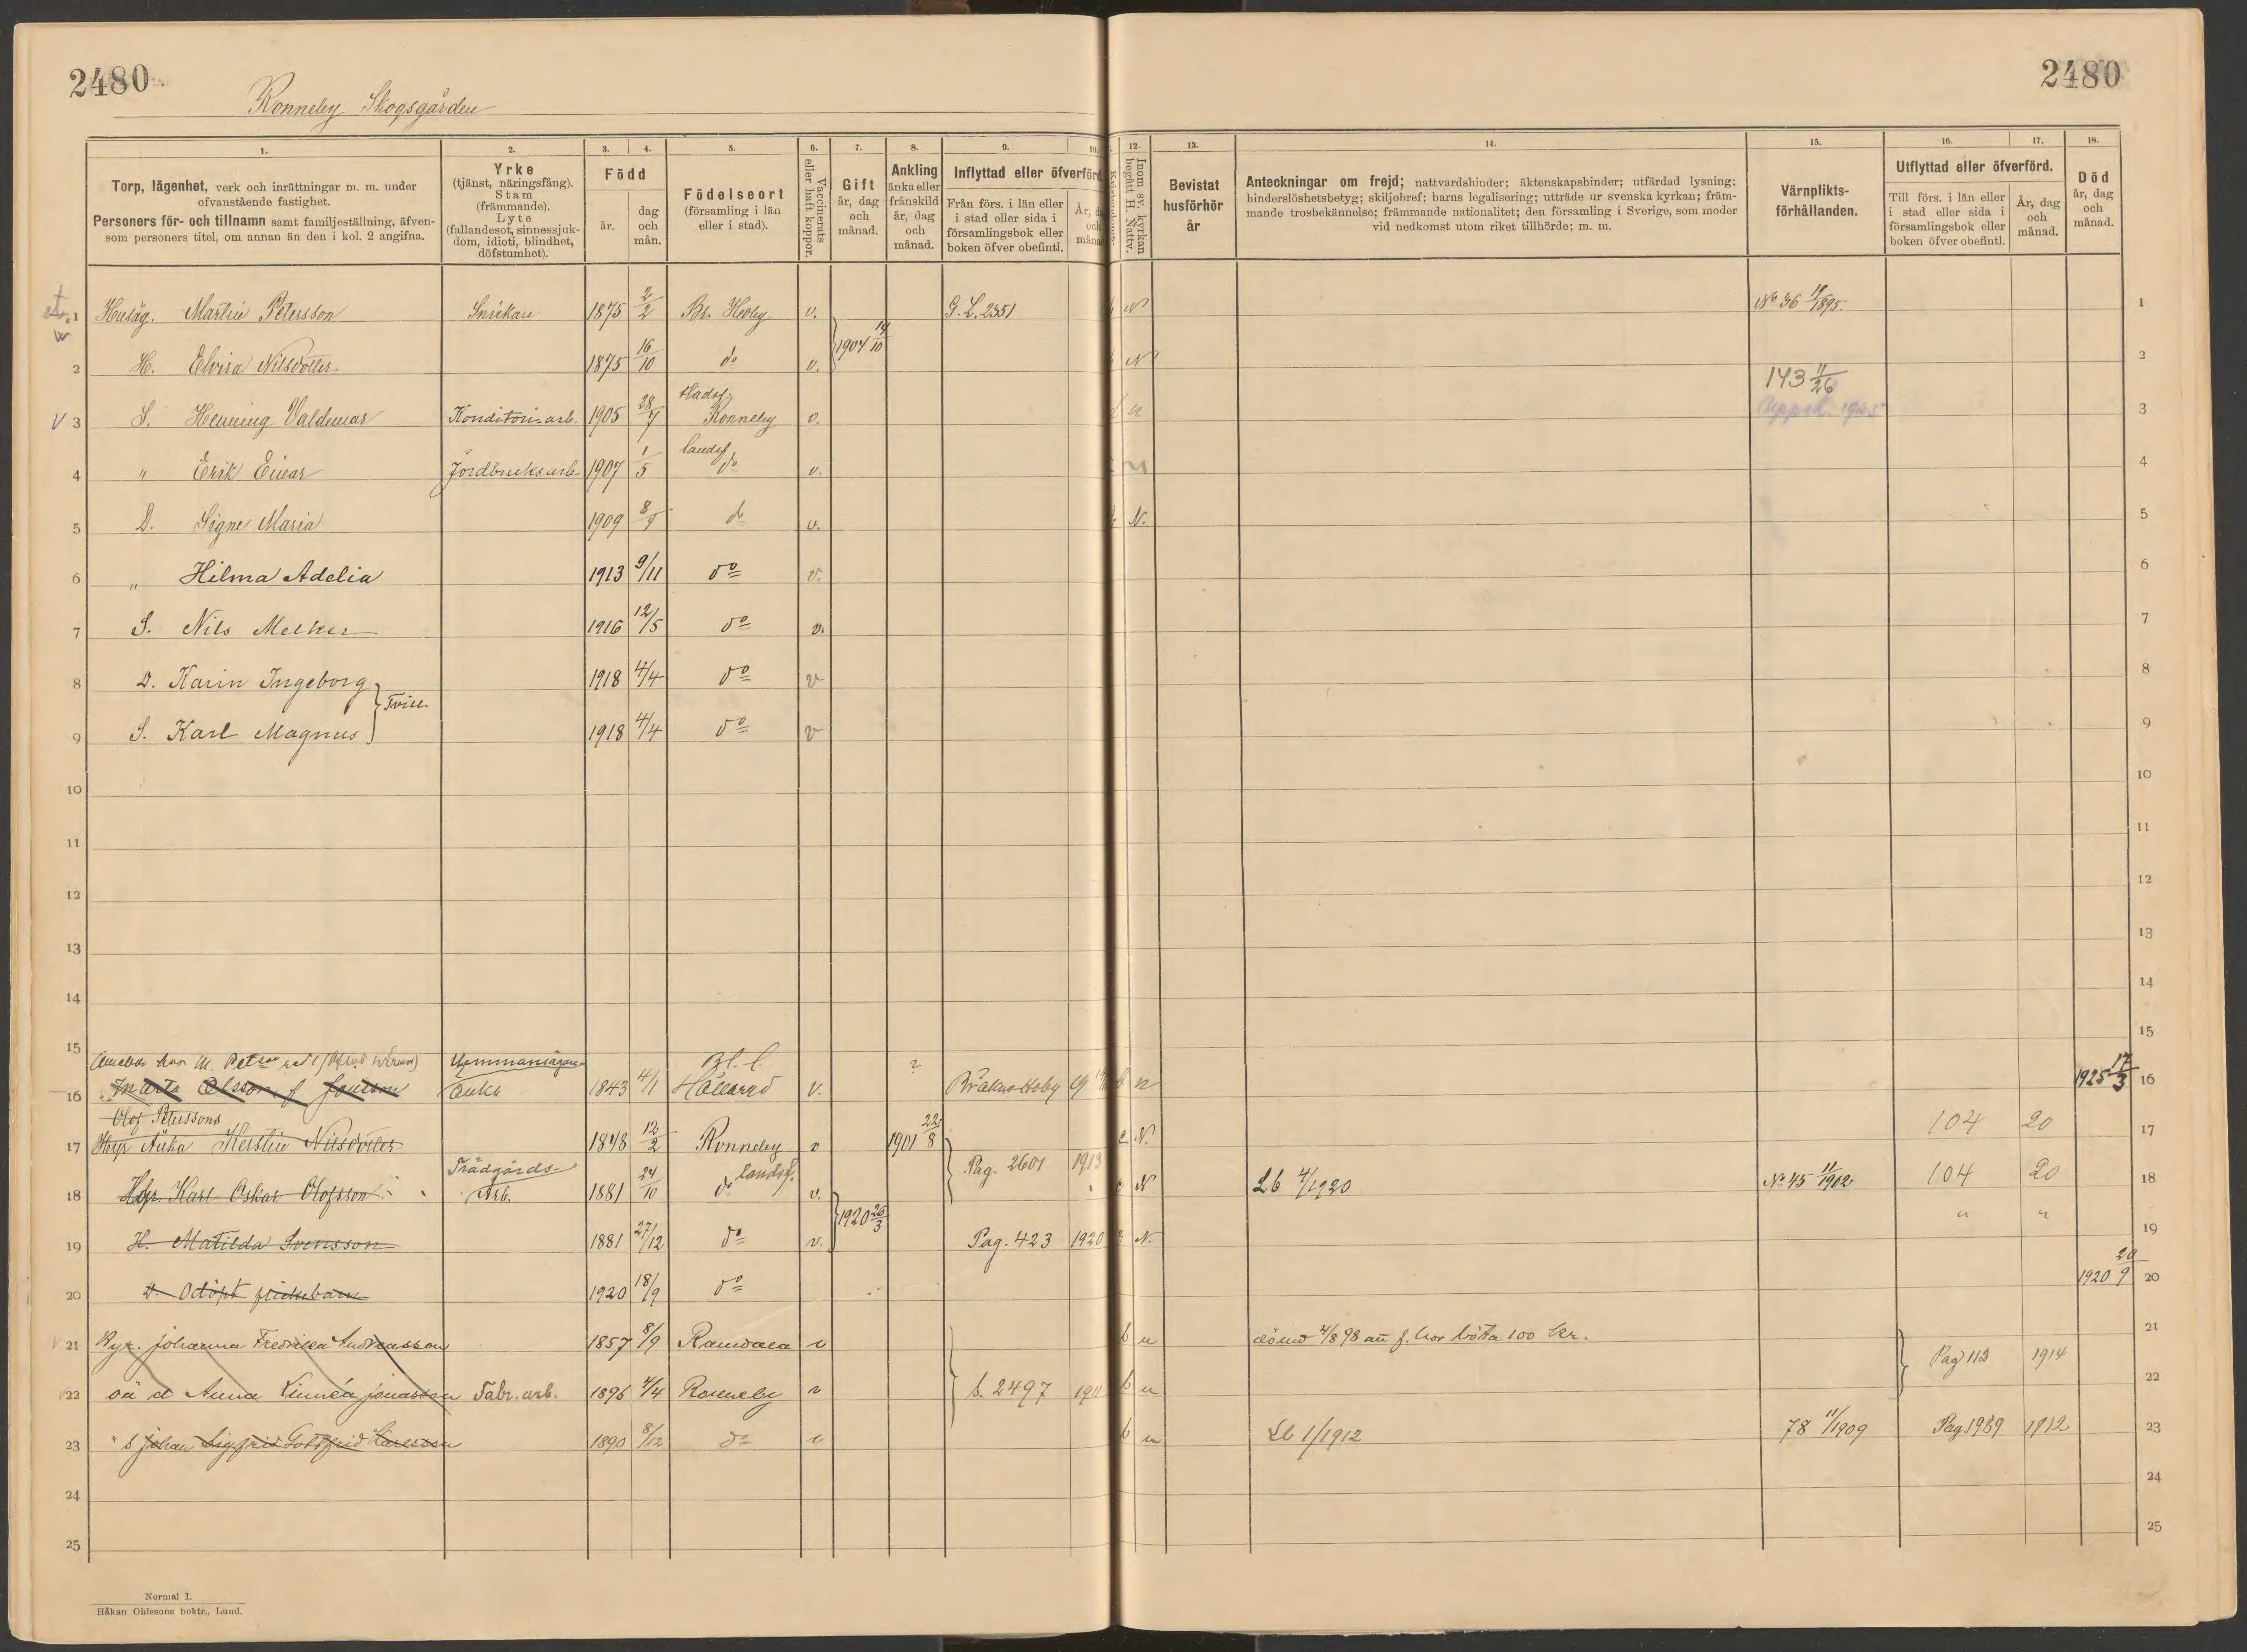 2480
2480
Ronneby Skogsgården
1.
Torp, lägenhet, verk och inrättningar m. m. under
ofvanstående fastighet.
Personers för- och tillnamn samt familjeställning, äfven-
som personers titel, om annan än den i kol. 2 angifna.
2.
Yrke
(tjänst, näringsfång).
Stam
(främmande).
Lyte
(fallandesot, sinnessjuk-
dom, idioti, blindhet,
döfstumhet).
3. 4.
Född
år.
dag
och
mån.
5.
Födelseort
(församling i län
eller i stad).
6.
Vaccinerats
eller haft koppor.
7.
Gift
år, dag
och
månad.
8.
Ankling
änka eller
frånskild
år, dag
och
månad.
9. 10.
Inflyttad eller öfverförd
Från förs. i län eller
i stad eller sida i
församlingsbok eller
boken öfver obefintl.
År, d
och
måna
12.
Inom sv. kyrkan
begått H. Nattv.
13.
Bevistat
husförhör
år
14.
Anteckningar om frejd; nattvardshinder; äktenskapshinder; utfärdad lysning;
hinderslöshetsbetyg; skiljobref; barns legalisering; utträde ur svenska kyrkan; främ-
mande trosbekännelse; främmande nationalitet; den församling i Sverige, som moder
vid nedkomst utom riket tillhörde; m. m.
15.
Värnplikts-
förhållanden.
16. 17.
Utflyttad eller öfverförd.
Till förs. i län eller
i stad eller sida i
församlingsbok eller
boken öfver obefintl.
År, dag
och
månad.
18.
Död
år, dag
och
månad.
1 Husäg. Martin Petersson Snickare 1875 2/2 Br. Hoby v. G. L. 2351 N No 36 1895. 1
1904 14/10
2 H. Elvira Nilsdotter 1875 16/10 do v. N 2
143 11/26
Stadsf.
V 3 S. Henning Valdemar Konditoriarb. 1905 28/7 Ronneby v. n 1925 3
landsf.
4 " Erik Einar Jordbruksarb. 1907 1/5 do v. n 4
5 D. Signe Maria 1909 8/9 do v. N. 5
6 " Hilma Adelia 1913 9/11 do v. 6
7 S. Nils Melker 1916 12/5 do v. 7
8 D. Karin Ingeborg 1918 4/4 do v 8
Tvill.
9 S. Karl Magnus 1918 4/4 do v 9
10 10
11 11
12 12
13 13
14 14
15 15
hos M. Hemmansägare Bl. l.
16 Olsson f. Jonsson änka 1843 4/1 Hällaryd v. ? Bräkne-Hoby 19 b n 1925 17/3 16
Olof Peterssons
17 Hyr Änka Kerstin Nilsdotter 1848 12/2 Ronneby v 1901 22/8 N. 104 20 17
Trädgårds- landsf. Pag. 2601 1913
18 Hyr. Karl Oskar Olofsson Arb. 1881 24/10 do v. N Lb 4/1920 No 45 11/1902 104 20 18
1920 26/3
19 H. Matilda Svensson 1881 27/12 do v. Pag. 423 1920 N. " " 19
20 D. Odöpt flickebarn 1920 18/9 do 1920 20/9 20
21 Hyr. Johanna Fredrika Andreasson 1857 8/9 Ramdala v b n dömd 4/8 98 att f. hor böta 100 kr. 21
Pag 113 1914
22 oä d Anna Linnéa Jonasson Fabr. arb. 1896 4/4 Ronneby v S. 2497 1911 b n 22
23 " s Johan Sigfrid Gottfrid Karlsson 1890 8/12 do v b n Lb 1/1912 78 11/1909 Pag 1989 1912 23
24 24
25 25
Normal I.
Håkan Ohlssons boktr., Lund.